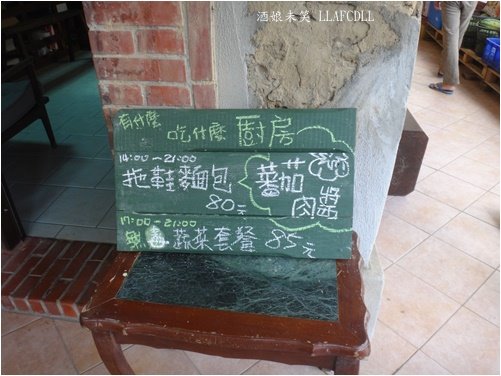 酒娘未笑 LLAFCDLL
有什麼吃什麼 廚房
14:00～21:00
拖鞋麵包 80元
蕃茄肉醬
17:00-21:00
無毒蔬菜套餐 85元